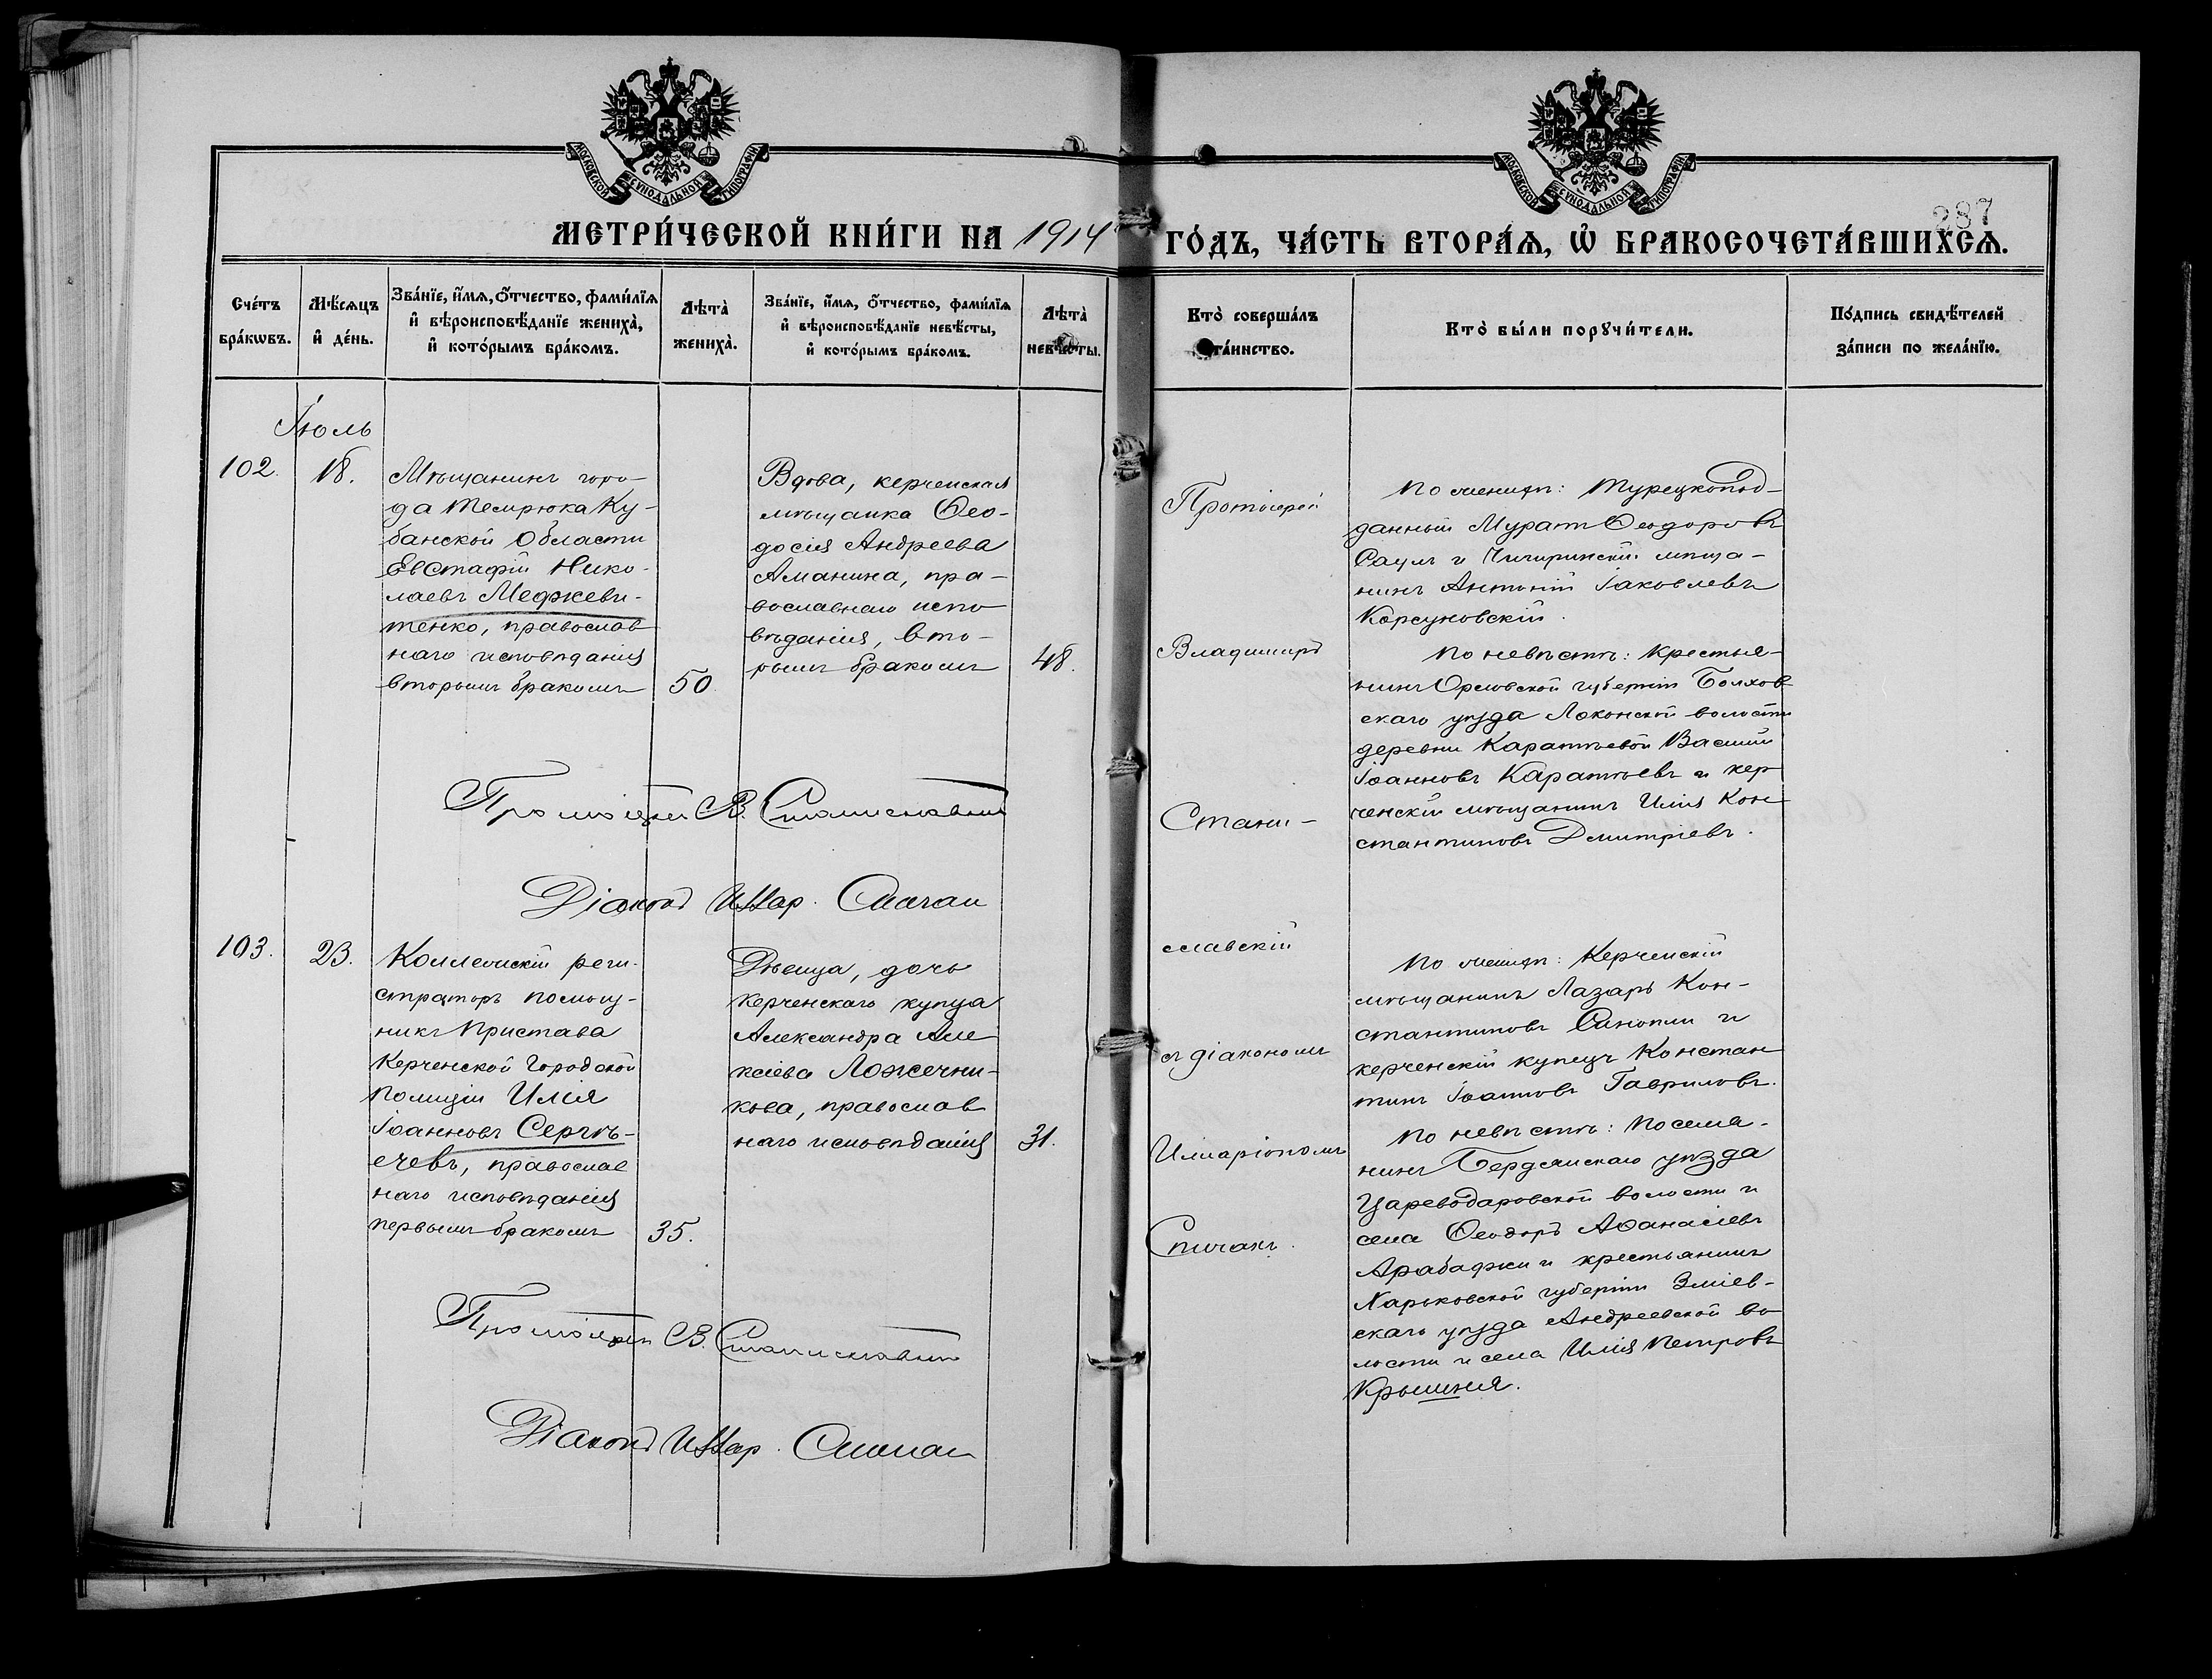 МОСКОВСКОЙ СУНОДАЛЬНОЙ ТИПОГРАФІИ
МОСКОВСКОЙ СУНОДАЛЬНОЙ ТИПОГРАФІИ
287
МЕТРИ́ЧЕСКОЙ КНИ́ГИ НА 1914 ГО́ДЪ, ЧА́СТЬ ВТОРА́Ѧ, Ѡ҆ БРАКОСОЧЕТА́ВШИХСѦ.
Сче́тъ бра́кѡвъ.
Мѣ́сѧцъ и҆ де́нь.
Зва́нїе, и҆́мѧ, ѻ҆́тчество, фами́лїѧ
и҆ вѣроисповѣ́данїе жениха̀,
и҆ кото́рымъ бра́комъ.
Лѣта̀ жениха̀.
Зва́нїе, и҆́мѧ, ѻ҆́тчество, фами́лїѧ
и҆ вѣроисповѣ́данїе невѣ́сты,
и҆ кото́рымъ бра́комъ.
Лѣта̀ невѣ́сты.
Кто̀ соверша́лъ та́инство.
Кто̀ бы́ли порꙋчи́тели.
По́дпись свидѣ́телей
за́писи по жела́нїю.
Іюль
102.
18.
Мѣщанинъ горо-
да Темрюка Ку-
банской Области
Евстафій Нико-
лаевъ Меджеви-
тенко, православ
наго исповѣданія
вторымъ бракомъ
50.
Вдова, керченская
мѣщанка Ѳео-
досія Андреева
Аманина, пра-
вославнаго испо
вѣданія, вто-
рымъ бракомъ
48.
Протоіерей
Владиміръ
Стани-
славскій
съ діакономъ
Иларіономъ
Спичакъ.
По женихѣ: Турецкопод-
данный Муратъ Ѳеодоровъ
Саулъ и Чигиринскій мѣща-
нинъ Антоній Іаковлевъ
Корсуновскій.
По невѣстѣ: крестья-
нинъ Орловской губерніи Болхов
скаго уѣзда Локонской волости
деревни Каратѣевой Василій
Іоанновъ Каратѣевъ и кер
ченскій мѣщанинъ Илія Кон
стантиновъ Дмитріевъ.
Протоіерей В. Станиславскій
Діаконъ Иллар. Спичак
103.
23.
Коллежскій реги-
страторъ помощ-
никъ Пристава
Керченской Городской
Полиціи Илія
Іоанновъ Сергѣ-
ечевъ, православ
наго исповѣданія
первымъ бракомъ
35.
Дѣвица, дочь
керченскаго купца
Александра Але
ксіева Ложечни-
кова, православ
наго исповѣданія
31.
По женихѣ: Керченскій
мѣщанинъ Лазарь Кон-
стантиновъ Синопли и
керченскій купецъ Констан
тинъ Іоанновъ Гавриловъ.
По невѣстѣ: поселя-
нинъ Бердянскаго уѣзда
Цареводаровской волости и
села Ѳеодоръ Аѳанасіевъ
Арабаджи и крестьянинъ
Харьковской губерніи Зміев-
скаго уѣзда Андреевской во
лости и села Илія Петровъ
Крышня.
Протоіерей В. Станиславскій
Діаконъ Иллар. Спичак